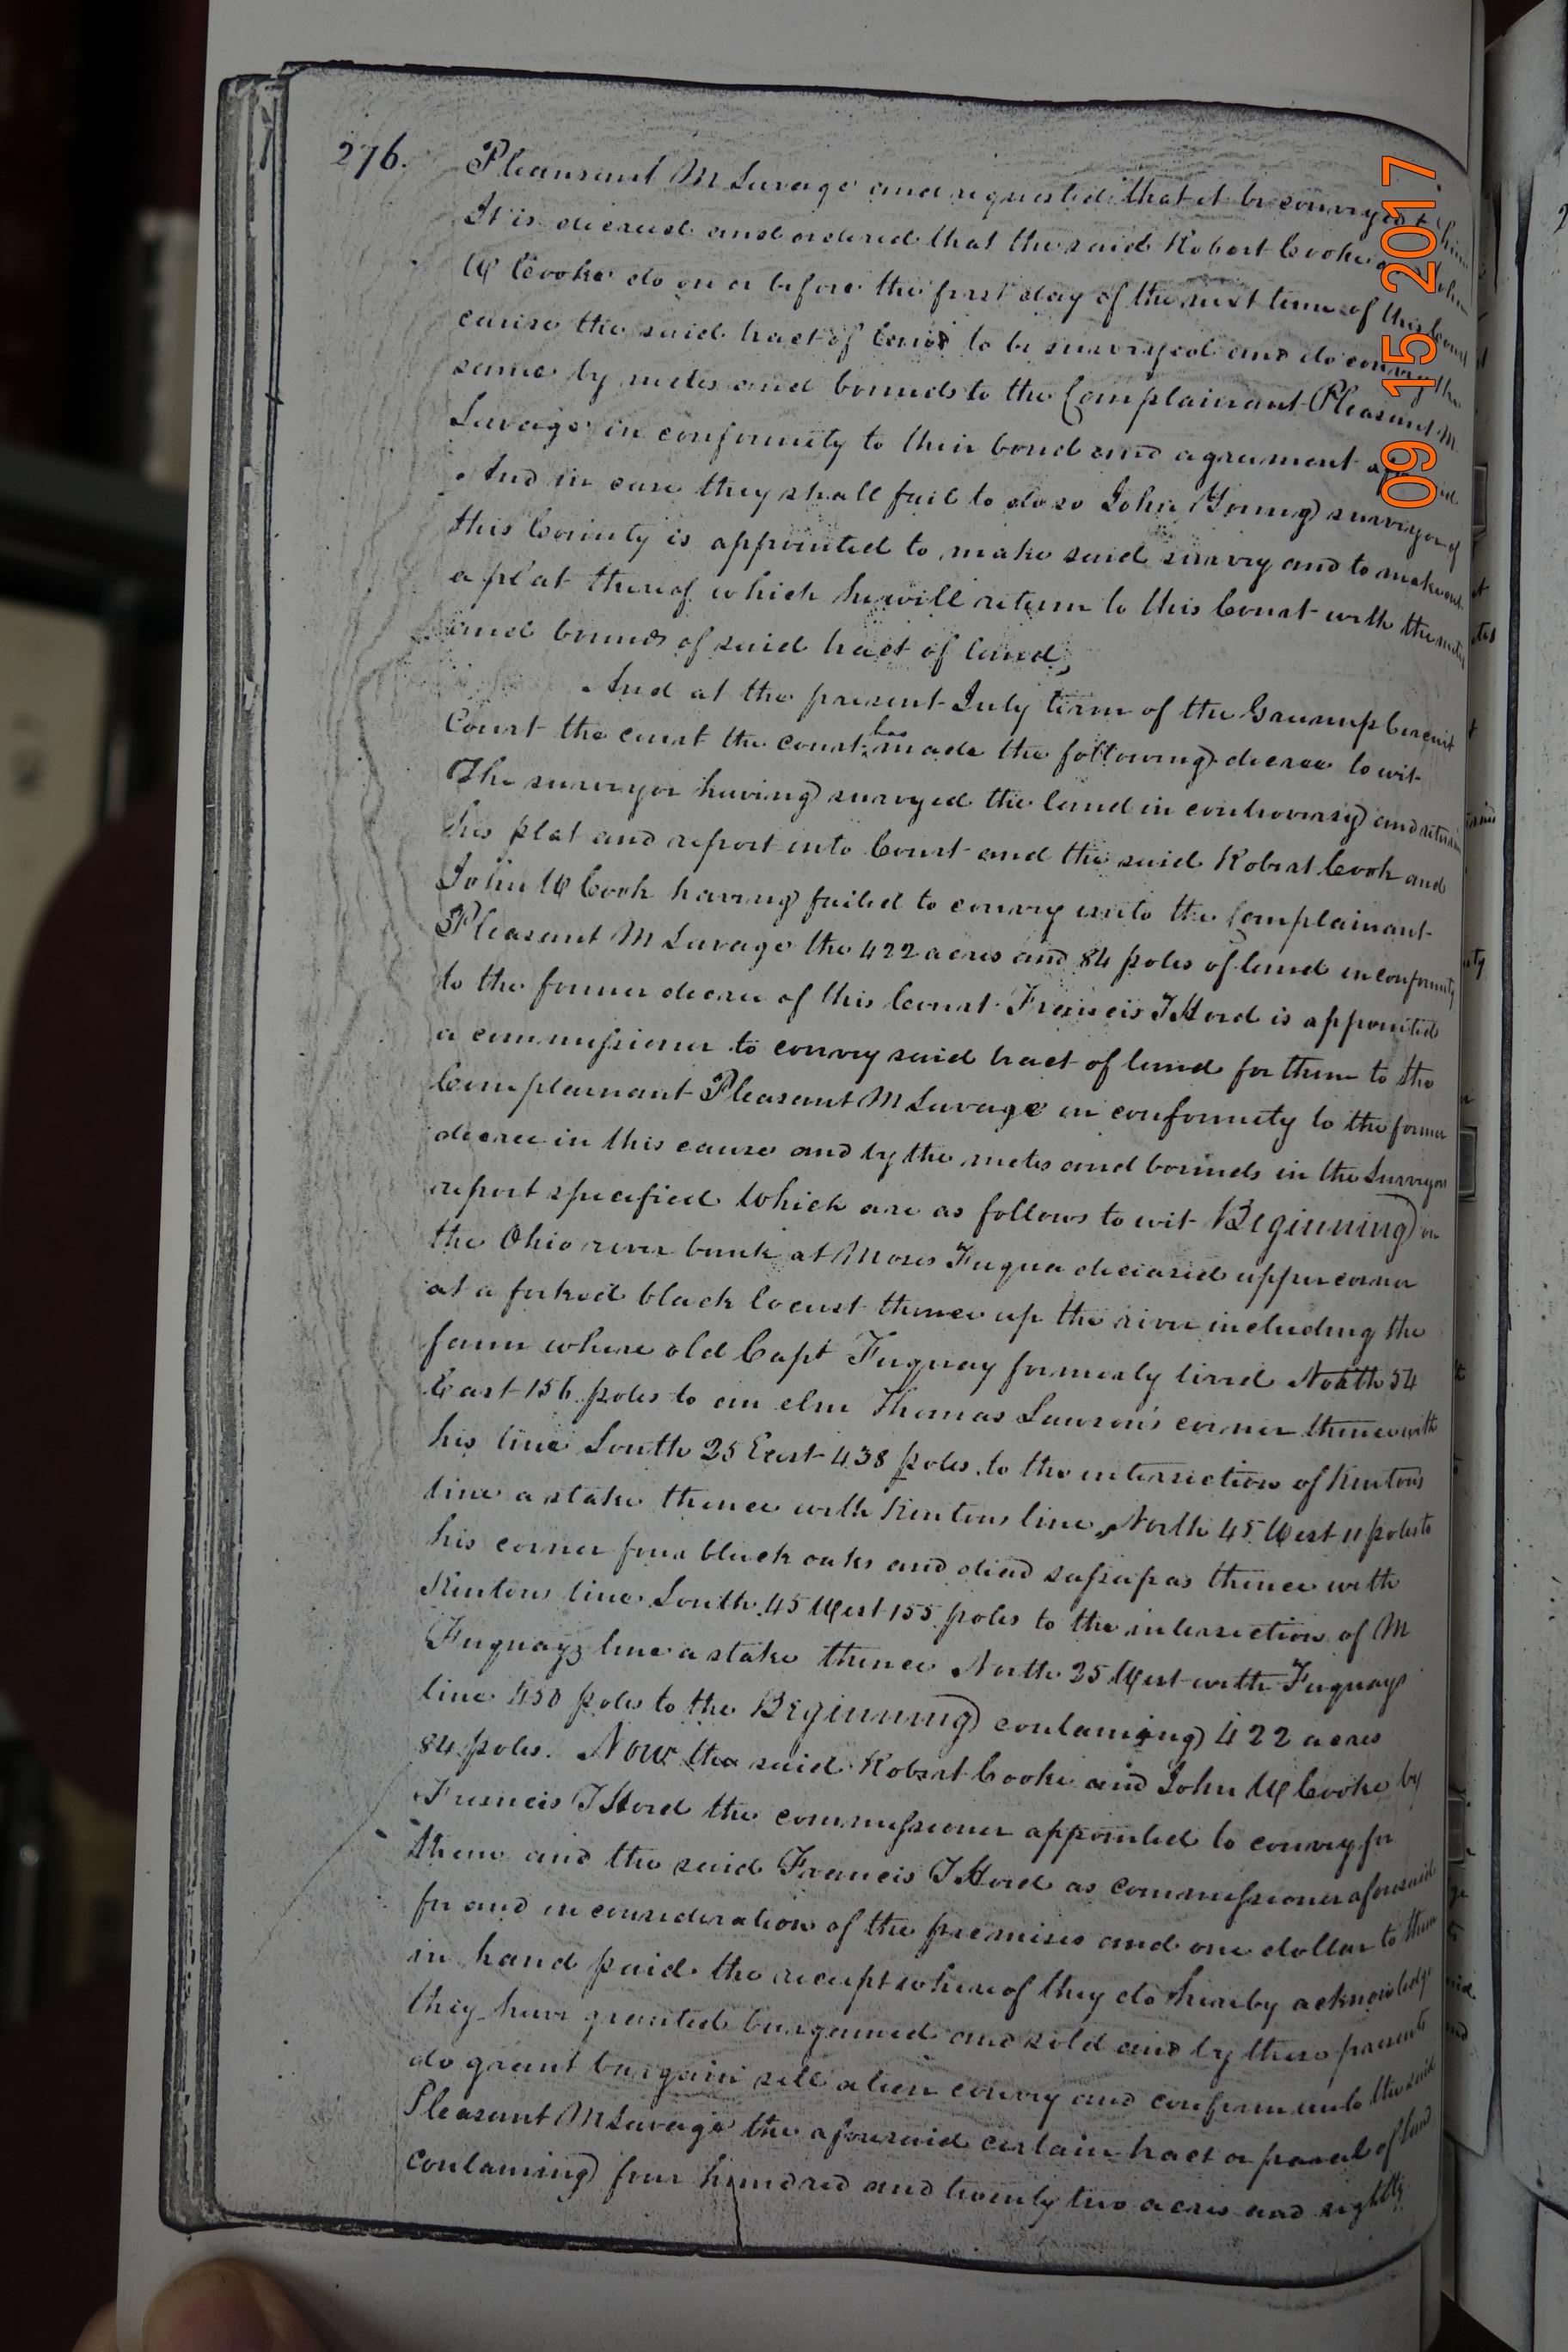 276.
Pleansant M Savage and requested that it be conveyed to him
It is decreed and ordered that the said Robert Cooke and John
W Cooke do on or before the first day of the next term of this Court
cause the said tract of land to be surveyed and do convey the
same by metes and bounds to the Complainant Pleasant M
Savage in conformity to their bond and agreement
And in case they shall fail to do so John Young surveyor of
this County is appointed to make said survey and to make out
a plat thereof which he will return to this Court with the metes
and bounds of said tract of land,
And at the present July term of the Greenup Circuit
Court the court the court has made the following decree to wit
The surveyor having surveyed the land in controversy and return
his plat and report into Court and the said Robert Cook and
John W Cook having failed to convey unto the Complainant
Pleasant M Savage the 422 acres and 84 poles of land in conformity
to the former decree of this Court Francis T Hord is appointed
a commissioner to convey said tract of land for them to the
Complainant Pleasant M Savage in conformity to the former
decree in this cause and by the metes and bounds in the Surveyors
report specified Which are as follows to wit Beginning on
the Ohio river bank at Moses Fuqua deceased upper corner
at a forked black locust thence up the river including the
farm where old Capt Fuquay formerly lived North 54
East 156 poles to an elm Thomas Lawson's corner thence with
his line South 25 East 438 poles to the intersection of Kentons
line a stake thence with Kentons line North 45 West 11 poles to
his corner four black oaks and dead sassafras thence with
Kentons line South 45 West 155 poles to the intersection of M
Fuquays line a stake thence North 25 West with Fuquays
line 450 poles to the Beginning containing 422 acres
84 poles. Now the said Robert Cooke and John W Cooke by
Francis T Hord the commissioner appointed to convey for
them and the said Francis T Hord as commissioner aforesaid
for and in consideration of the premises and one dollar to them
in hand paid the receipt whereof they do hereby acknowledge
they have granted bargained and sold and by these presents
do grant bargain sell alien convey and confirm unto the said
Pleasant M Savage the aforesaid certain tract or parcel of land
containing four hundred and twenty two acres and eighty
09 15 2017